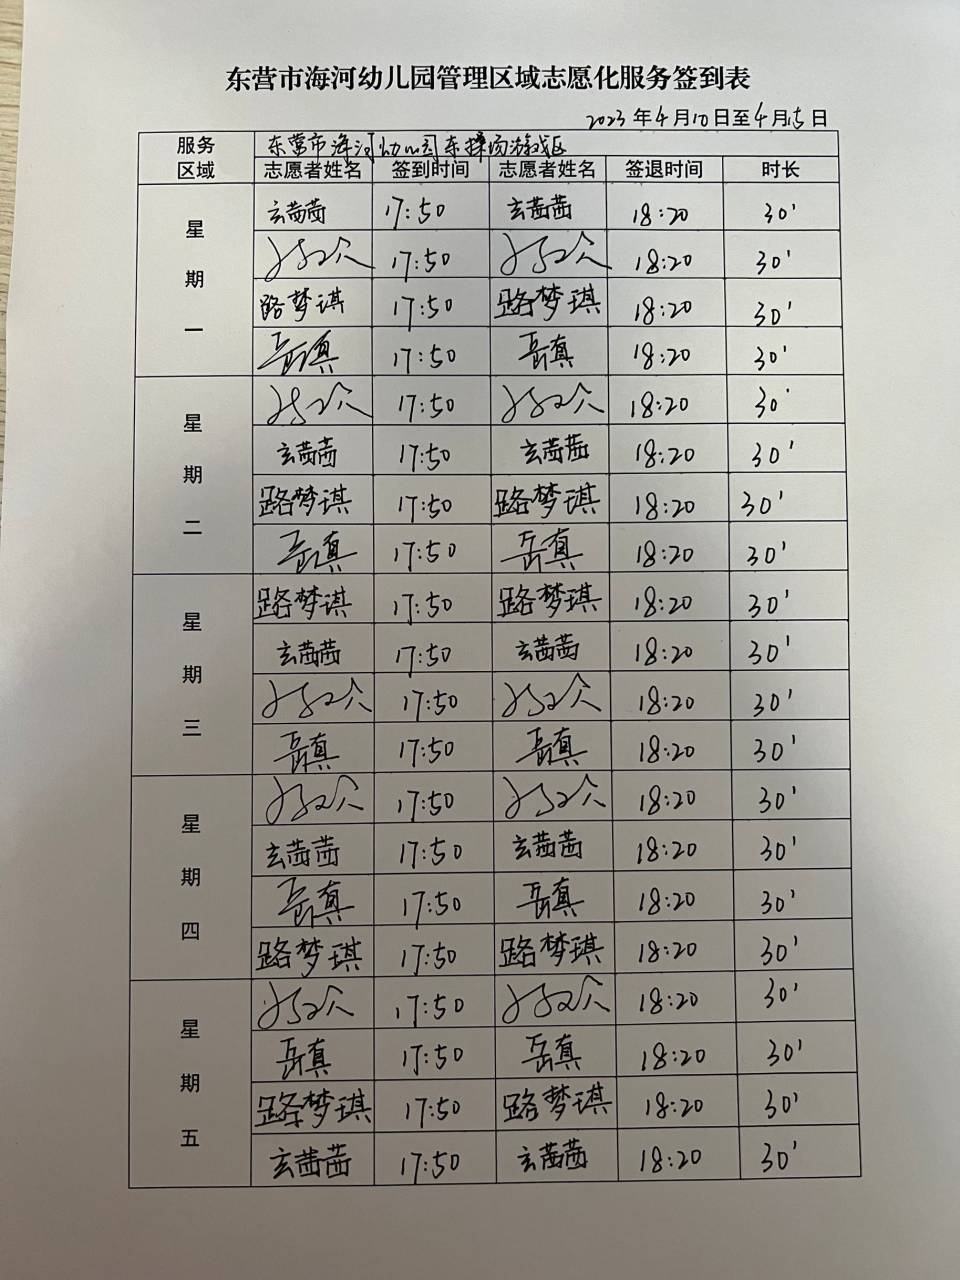 东营市海河幼儿园管理区域志愿化服务签到表
2023年4月10日至4月15日
服务区域 东营市海河幼儿园东操场游戏区
志愿者姓名 签到时间 志愿者姓名 签退时间 时长
星期一
玄茜茜 17:50 玄茜茜 18:20 30'
17:50 18:20 30'
路梦琪 17:50 路梦琪 18:20 30'
岳真 17:50 岳真 18:20 30'
星期二
17:50 18:20 30'
玄茜茜 17:50 玄茜茜 18:20 30'
路梦琪 17:50 路梦琪 18:20 30'
岳真 17:50 岳真 18:20 30'
星期三
路梦琪 17:50 路梦琪 18:20 30'
玄茜茜 17:50 玄茜茜 18:20 30'
17:50 18:20 30'
岳真 17:50 岳真 18:20 30'
星期四
17:50 18:20 30'
玄茜茜 17:50 玄茜茜 18:20 30'
岳真 17:50 岳真 18:20 30'
路梦琪 17:50 路梦琪 18:20 30'
星期五
17:50 18:20 30'
岳真 17:50 岳真 18:20 30'
路梦琪 17:50 路梦琪 18:20 30'
玄茜茜 17:50 玄茜茜 18:20 30'